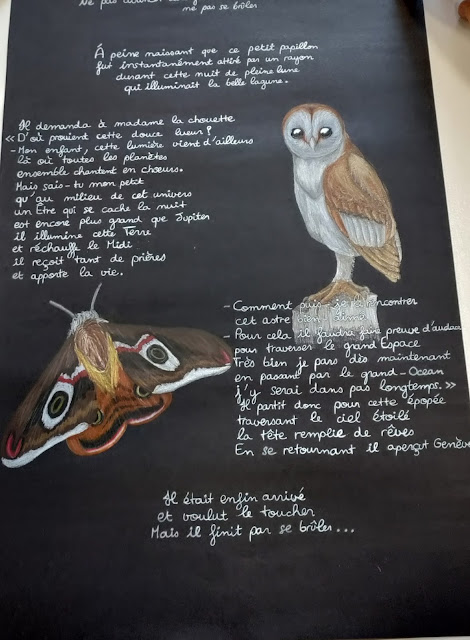 ne pas se brûler
À peine naissant que ce petit papillon
fut instantanément attiré par un rayon
durant cette nuit de pleine lune
qui illuminait la belle lagune.
Il demanda à madame la chouette
« D'où provient cette douce lueur ?
- Mon enfant, cette lumière vient d'ailleurs
là où toutes les planètes
ensemble chantent en chœurs.
Mais sais-tu mon petit
qu'au milieu de cet univers
un Être qui se cache la nuit
est encore plus grand que Jupiter
il illumine cette Terre
et réchauffe le Midi
il reçoit tant de prières
et apporte la vie.
- Comment puis-je rencontrer
cet astre bien aimé
- Pour cela il faudra faire preuve d'audace
pour traverser le grand Espace
Très bien je pars dès maintenant
en passant par le grand-Ocean
j'y serai dans pas longtemps. »
Il partit donc pour cette épopée
traversant le ciel étoilé
la tête remplie de rêves
En se retournant il aperçut Genève
Il était enfin arrivé
et voulut le toucher
Mais il finit par se brûler...